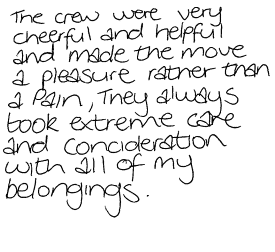 The crew were very
cheerful and helpful
and made the move
a pleasure rather than
a pain, They always
took extreme care
and concideration
with all of my
belongings.